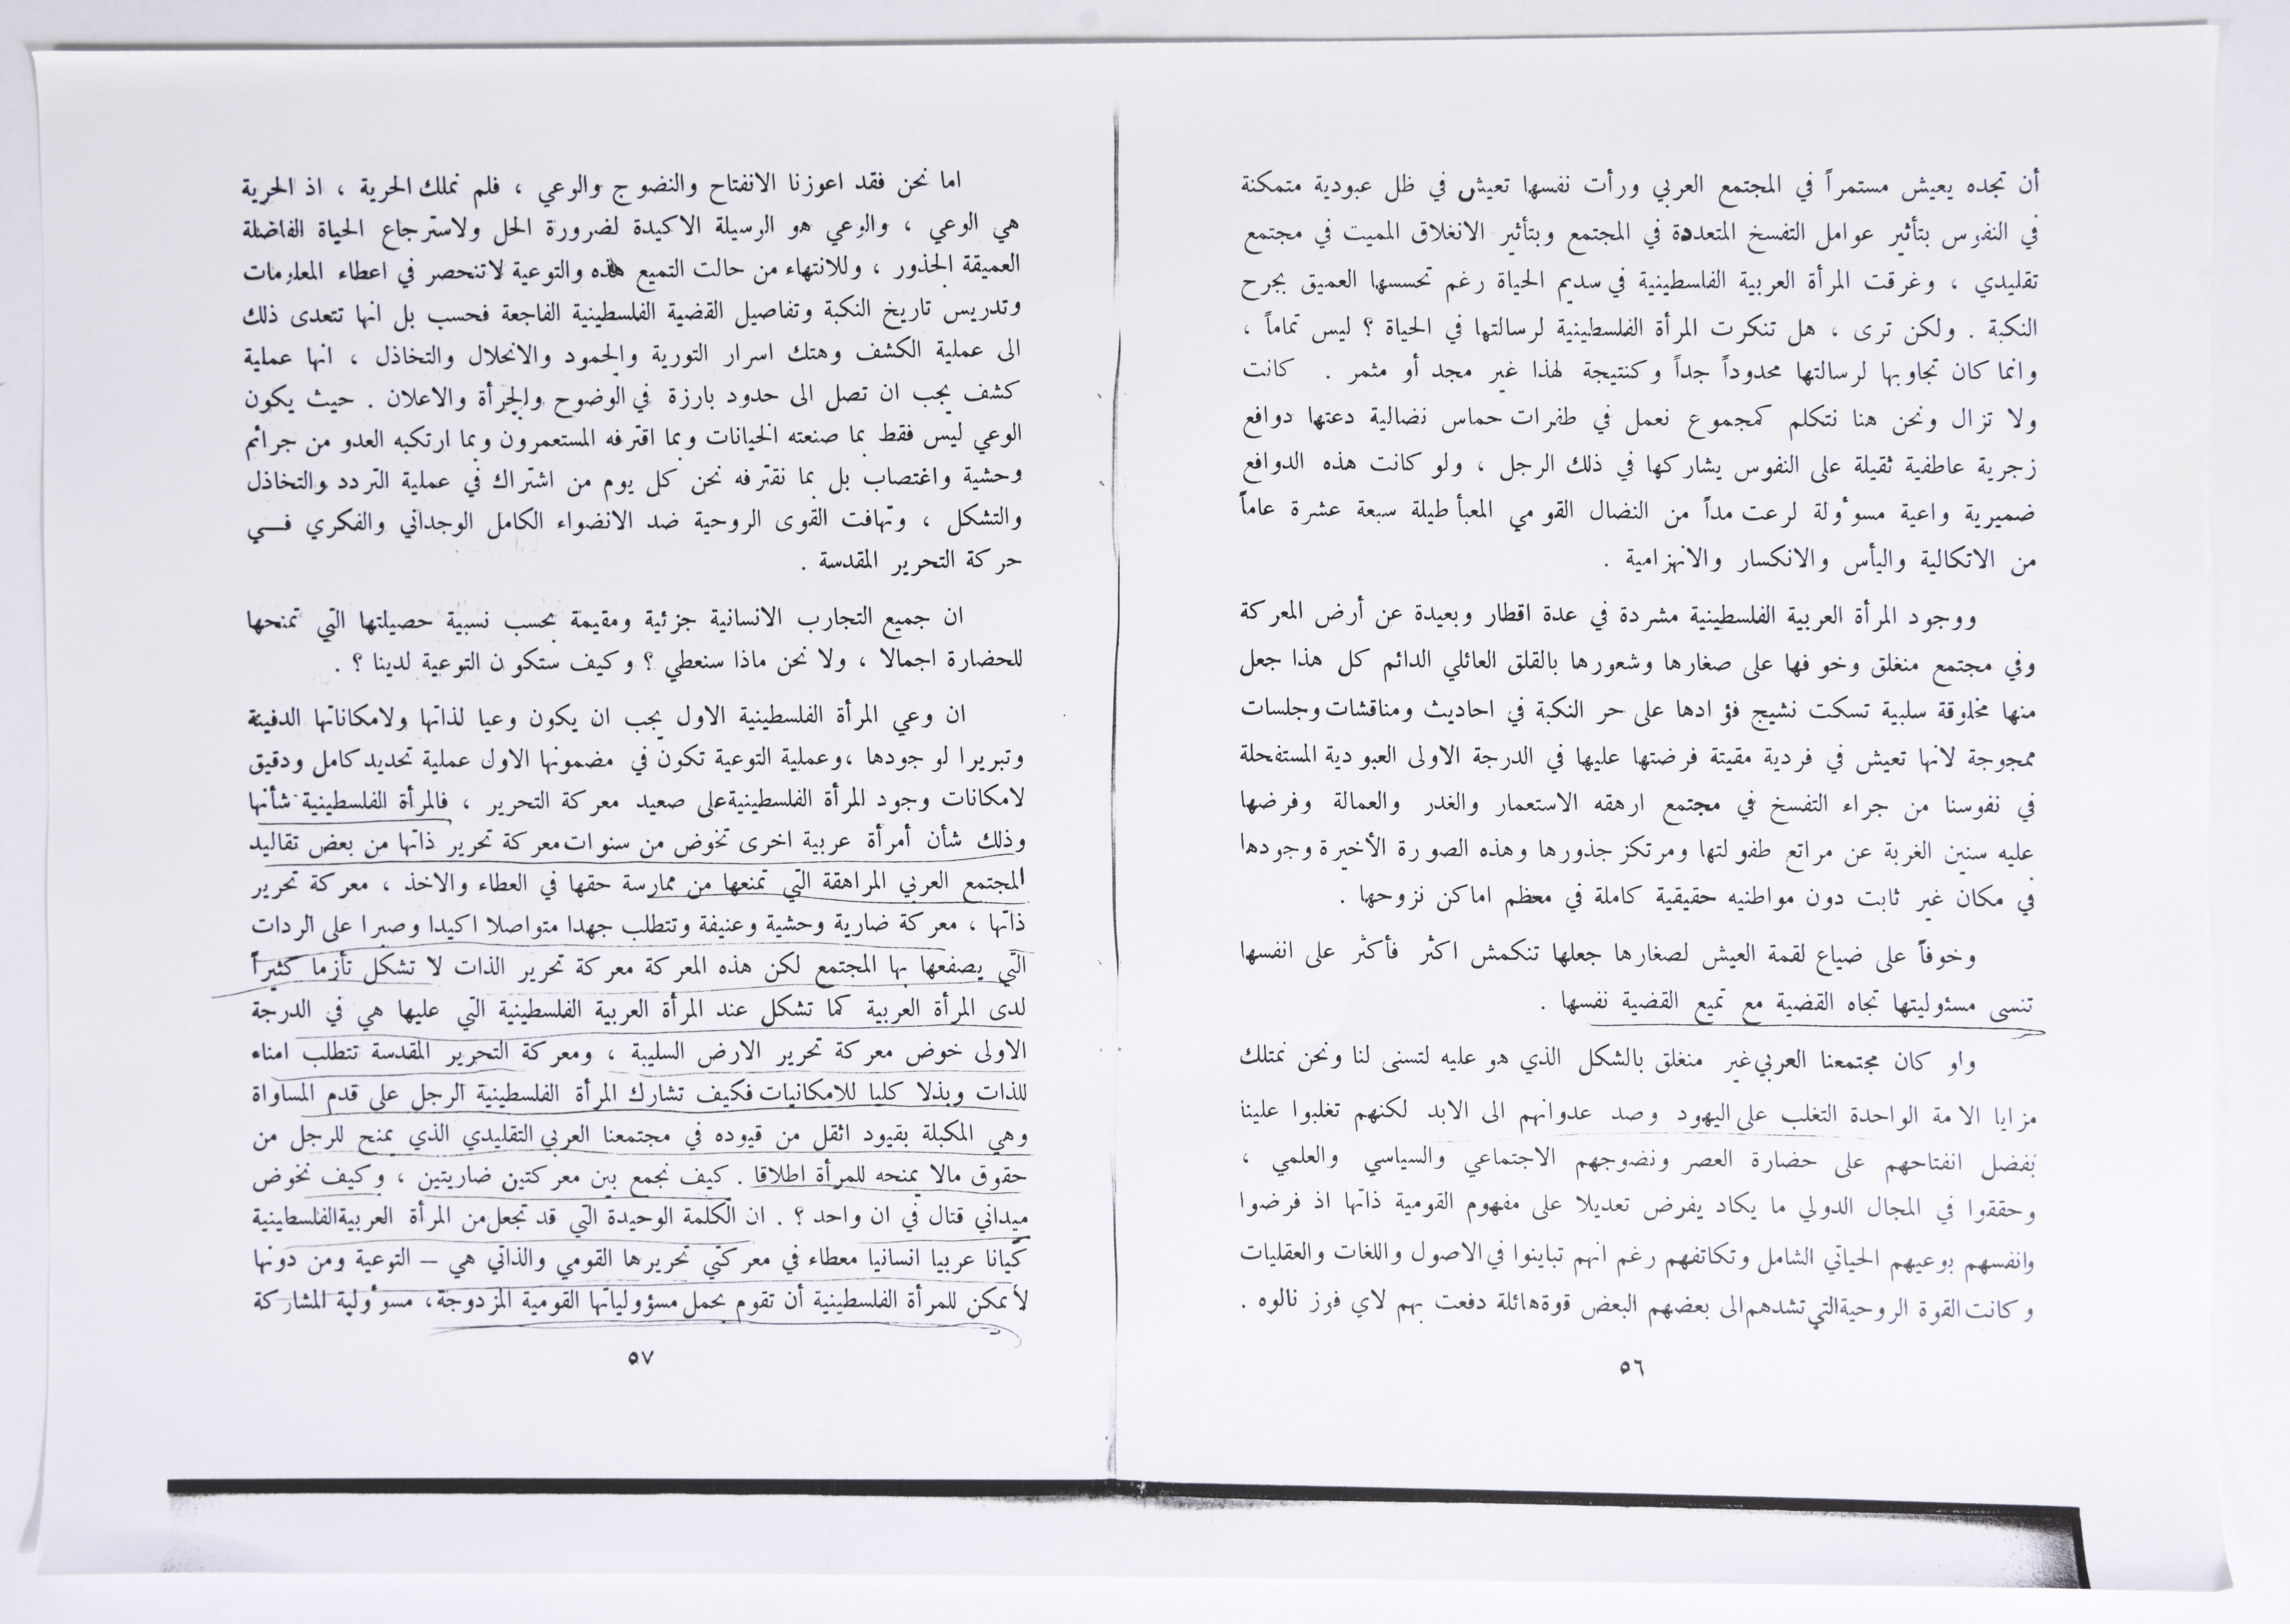 أن تجده يعيش مستمراً في المجتمع العربي ورأت نفسها تعيش في ظل عبودية متمكنة
في النفوس بتأثير عوامل التفسخ المتعددة في المجتمع وبتأثير الانغلاق المميت في مجتمع
تقليدي ، وغرقت المرأة العربية الفلسطينية في سديم الحياة رغم تحسسها العميق بجرح
النكبة . ولكن ترى ، هل تنكرت المرأة الفلسطينية لرسالتها في الحياة ؟ ليس تماماً ،
وانما كان تجاوبها لرسالتها محدوداً جداً وكنتيجة لهذا غير مجد أو مثمر . كانت
ولا تزال ونحن هنا نتكلم كمجموع نعمل في طفرات حماس نضالية دعتها دوافع
زجرية عاطفية ثقيلة على النفوس يشاركها في ذلك الرجل ، ولو كانت هذه الدوافع
ضميرية واعية مسوٴولة لرعت مداً من النضال القومي المعبأ طيلة سبعة عشرة عاماً
من الاتكالية واليأس والانكسار والانهزامية .
ووجود المرأة العربية الفلسطينية مشردة في عدة اقطار وبعيدة عن أرض المعركة
وفي مجتمع منغلق وخوفها على صغارها وشعورها بالقلق العائلي الدائم كل هذا جعل
منها مخلوقة سلبية تسكت نشيج فؤادها على حر النكبة في احاديث ومناقشات وجلسات
ممجوجة لانها تعيش في فردية مقيتة فرضتها عليها في الدرجة الاولى العبودية المستفحلة
في نفوسنا من جراء التفسخ في مجتمع ارهقه الاستعمار والغدر والعمالة وفرضها
عليه سنين الغربة عن مراتع طفولتها ومرتكز جذورها وهذه الصورة الأخيرة وجودها
في مكان غير ثابت دون مواطنيه حقيقية كاملة في معظم اماكن نزوحها .
وخوفاً على ضياع لقمة العيش لصغارها جعلها تنكمش اكثر فأكثر على انفسها
تنسى مسئوليتها تجاه القضية مع تميع القضية نفسها .
واو كان مجتمعنا العربي غير منغلق بالشكل الذي هو عليه لتسنى لنا ونحن نمتلك
مزايا الامة الواحدة التغلب على اليهود وصد عدوانهم الى الابد لكنهم تغلبوا علينا
بفضل انفتاحهم على حضارة العصر ونضوجهم الاجتماعي والسياسي والعلمي ،
وحققوا في المجال الدولي ما يكاد يفرض تعديلا على مفهوم القومية ذاتها اذ فرضوا
وانفسهم بوعيهم الحياتي الشامل وتكاتفهم رغم انهم تباينوا في الاصول واللغات والعقليات
وكانت القوة الروحية التي تشدهم الى بعضهم البعض قوة هائلة دفعت بهم لاي فوز نالوه .
٥٦
اما نحن فقد اعوزنا الانفتاح والنضوج والوعي ، فلم نملك الحرية ، اذ الحرية
هي الوعي ، والوعي هو الوسيلة الاكيدة لضرورة الحل ولاسترجاع الحياة الفاضلة
العميقة الجذور ، وللانتهاء من حالت التميع هذه والتوعية لاتنحصر في اعطاء المعلومات
وتدريس تاريخ النكبة وتفاصيل القضية الفلسطينية الفاجعة فحسب بل انها تتعدى ذلك
الى عملية الكشف وهتك اسرار التورية والجمود والانحلال والتخاذل ، انها عملية
كشف يجب ان تصل الى حدود بارزة في الوضوح والجرأة والاعلان . حيث يكون
الوعي ليس فقط بما صنعته الخيانات وبما اقترفه المستعمرون وبما ارتكبه العدو من جرائم
وحشية واغتصاب بل بما نقترفه نحن كل يوم من اشتراك في عملية التردد والتخاذل
والتشكل ، وتهافت القوى الروحية ضد الانضواء الكامل الوجداني والفكري فــي
حركة التحرير المقدسة .
ان جميع التجارب الانسانية جزئية ومقيمة بحسب نسبية حصيلتها التي تمنحها
للحضارة اجمالا ، ولا نحن ماذا سنعطي ؟ وكيف ستكون التوعية لدينا ؟ .
ان وعي المرأة الفلسطينية الاول يجب ان يكون وعيا لذاتها ولامكاناتها الدفينة
وتبريرا لوجودها ، وعملية التوعية تكون في مضمونها الاول عملية تحديد كامل ودقيق
لامكانات وجود المرأة الفلسطينية على صعيد معركة التحرير ، فالمرأة الفلسطينية شأنها
وذلك شأن أمرأة عربية اخرى تخوض من سنوات معركة تحرير ذاتها من بعض تقاليد
المجتمع العربي المراهقة التي تمنعها من ممارسة حقها في العطاء والاخذ ، معركة تحرير
ذاتها ، معركة ضارية وحشية وعنيفة وتتطلب جهدا متواصلا اكيدا وصبرا على الردات
التي يصفعها بها المجتمع لكن هذه المعركة معركة تحرير الذات لا تشكل تأزما كثيراً
لدى المرأة العربية كما تشكل عند المرأة العربية الفلسطينية التي عليها هي في الدرجة
الاولى خوض معركة تحرير الارض السليبة ، ومعركة التحرير المقدسة تتطلب امناء
للذات وبذلا كليا للامكانيات فكيف تشارك المرأة الفلسطينية الرجل على قدم المساواة
وهي المكبلة بقيود اثقل من قيوده في مجتمعنا العربي التقليدي الذي يمنح للرجل من
حقوق مالا يمنحه للمرأة اطلاقا . كيف نجمع بين معركتين ضاريتين ، وكيف نخوض
ميداني قتال في ان واحد ؟ . ان الكلمة الوحيدة التي قد تجعل من المرأة العربية الفلسطينية
كيانا عربيا انسانيا معطاء في معركتي تحريرها القومي والذاتي هي – التوعية ومن دونها
لأيمكن للمرأة الفلسطينية أن تقوم بحمل مسؤولياتها القومية المزدوجة، مسوٴولية المشاركة
٥٧